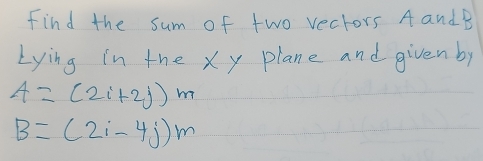 Find the sum of two vectors A and B
Lying in the x y plane and given by
A = (2i+2j) m
B = (2i-4j) m